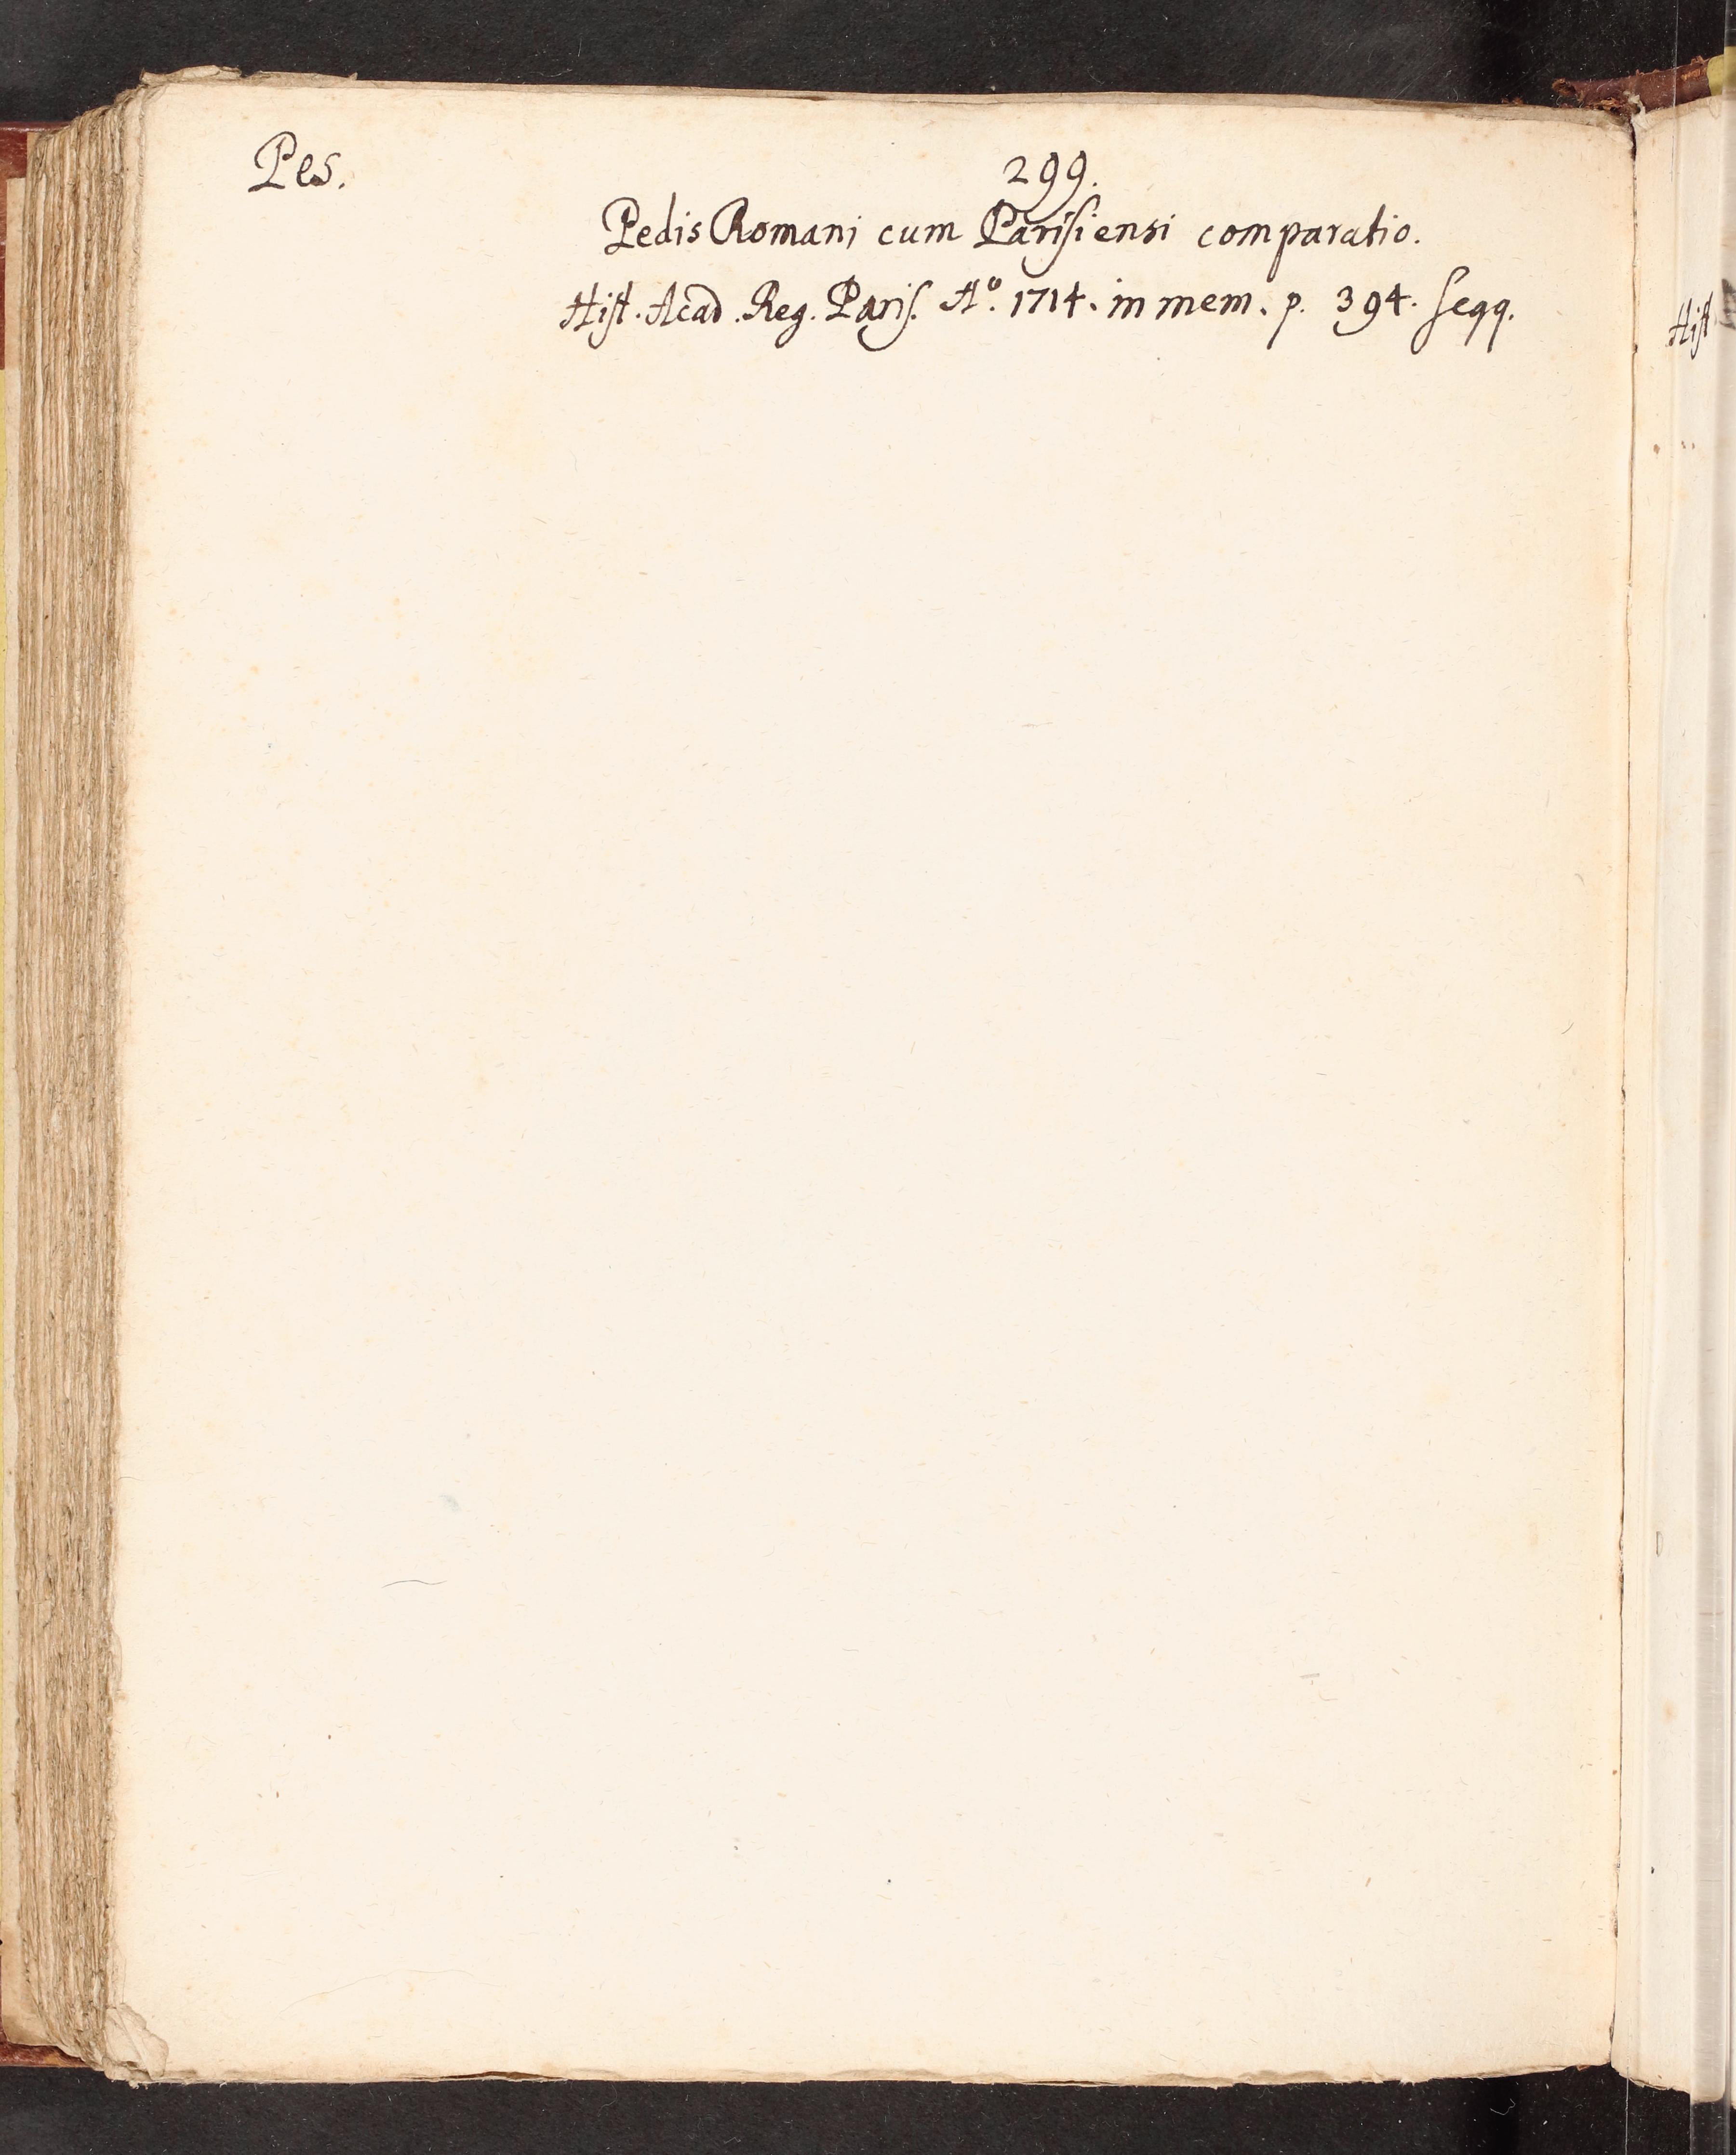 Pes.
299.
Pedis Romani cum Parisiensi comparatio.
Hist. Acad. Reg. Paris. Aº. 1714. in mem. p. 394. seqq.
Hist